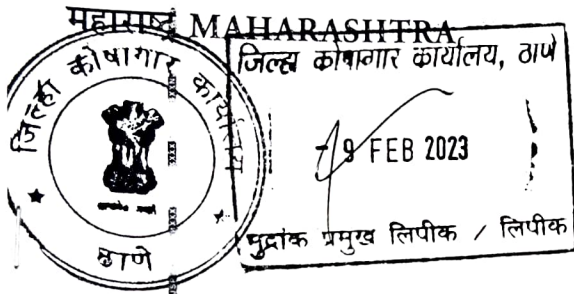 महाराष्ट्र MAHARASHTRA
जिल्हा कोषागार कार्यालय
ठाणे
जिल्हा कोषागार कार्यालय, ठाणे
- 9 FEB 2023
मुद्रांक प्रमुख लिपीक / लिपीक